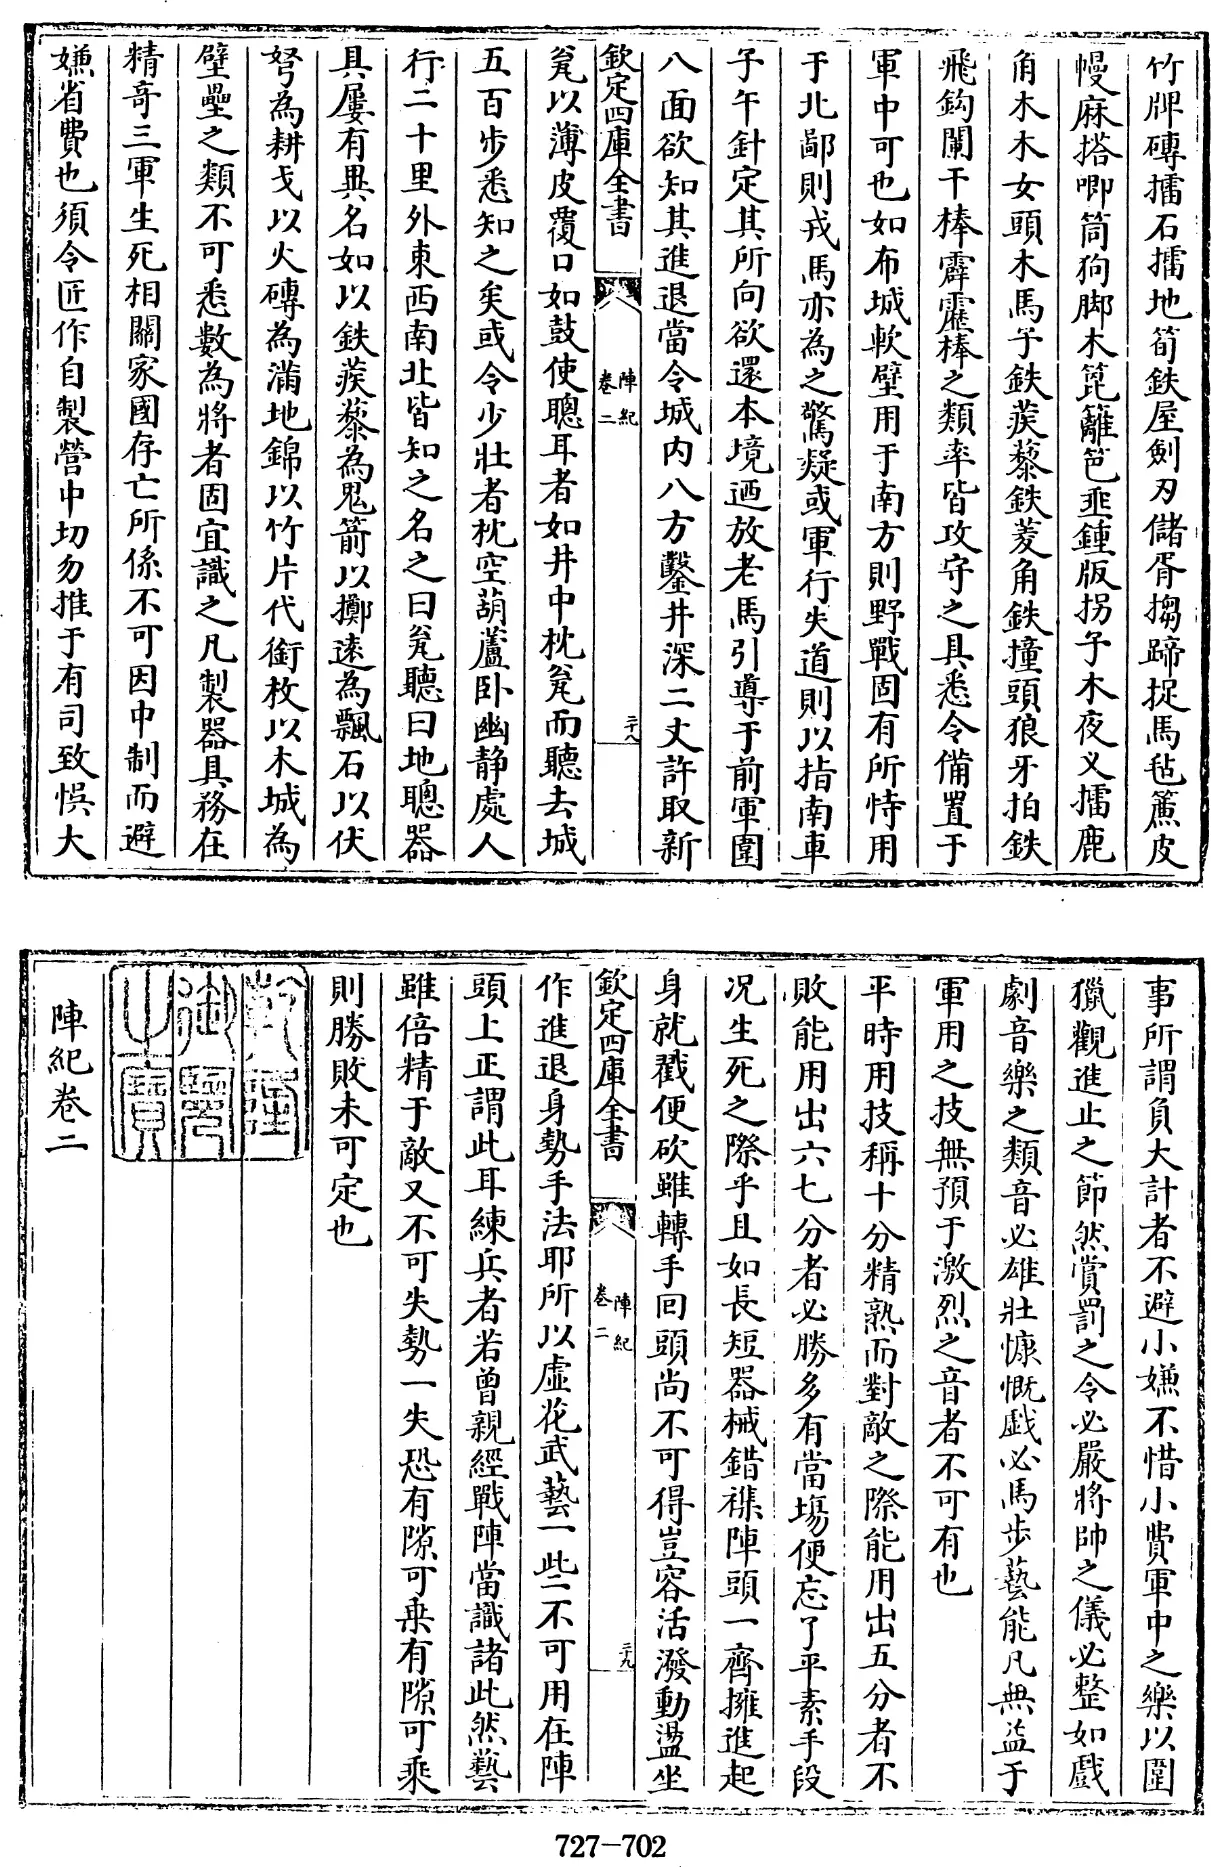 竹牌磚擂石擂地筍鉄屋劍刃儲胥搊蹄捉馬毡簾皮
幔麻搭唧筒狗脚木箆籬笆垂鍾版拐子木夜义擂鹿
角木木女頭木馬子鉄蒺藜鉄菱角鉄撞頭狼牙拍鉄
飛鈎闌干棒霹靂棒之類率皆攻守之具悉令備置于
軍中可也如布城軟壁用于南方則野戰固有所恃用
于北鄙則戎馬亦為之驚疑或軍行失道則以指南車
子午針定其所向欲還本境迺放老馬引導于前軍圍
八面欲知其進退當令城内八方鑿井深二丈許取新
欽定四庫全書
陣紀
卷二
二十八
瓮以薄皮覆口如鼓使聰耳者如井中枕瓮而聽去城
五百步悉知之矣或令少壯者枕空葫蘆卧幽静處人
行二十里外東西南北皆知之名之曰瓮聽曰地聰器
具屢有異名如以鉄蒺藜為鬼箭以擲逺為飄石以伏
弩為耕戈以火磚為滿地錦以竹片代銜枚以木城為
壁壘之類不可悉數為將者固宜識之凡製器具務在
精竒三軍生死相關家國存亡所係不可因中制而避
嫌省費也須令匠作自製營中切勿推于有司致悞大
事所謂負大計者不避小嫌不惜小費軍中之樂以圍
獵觀進止之節然賞罰之令必嚴將帥之儀必整如戲
劇音樂之類音必雄壯慷慨戲必馬步藝能凡無益于
軍用之技無預于激烈之音者不可有也
平時用技稱十分精熟而對敵之際能用出五分者不
敗能用出六七分者必勝多有當場便忘了平素手段
况生死之際乎且如長短器械錯襍陣頭一齊擁進起
身就戳便砍雖轉手回頭尚不可得豈容活潑動盪坐
欽定四庫全書
陣紀
卷二
二十九
作進退身勢手法耶所以虚花武藝一些不可用在陣
頭上正謂此耳練兵者若曾親經戰陣當識諸此然藝
雖倍精于敵又不可失勢一失恐有隙可乗有隙可乘
則勝敗未可定也
乾隆
御覽
之寶
陣紀卷二
727-702